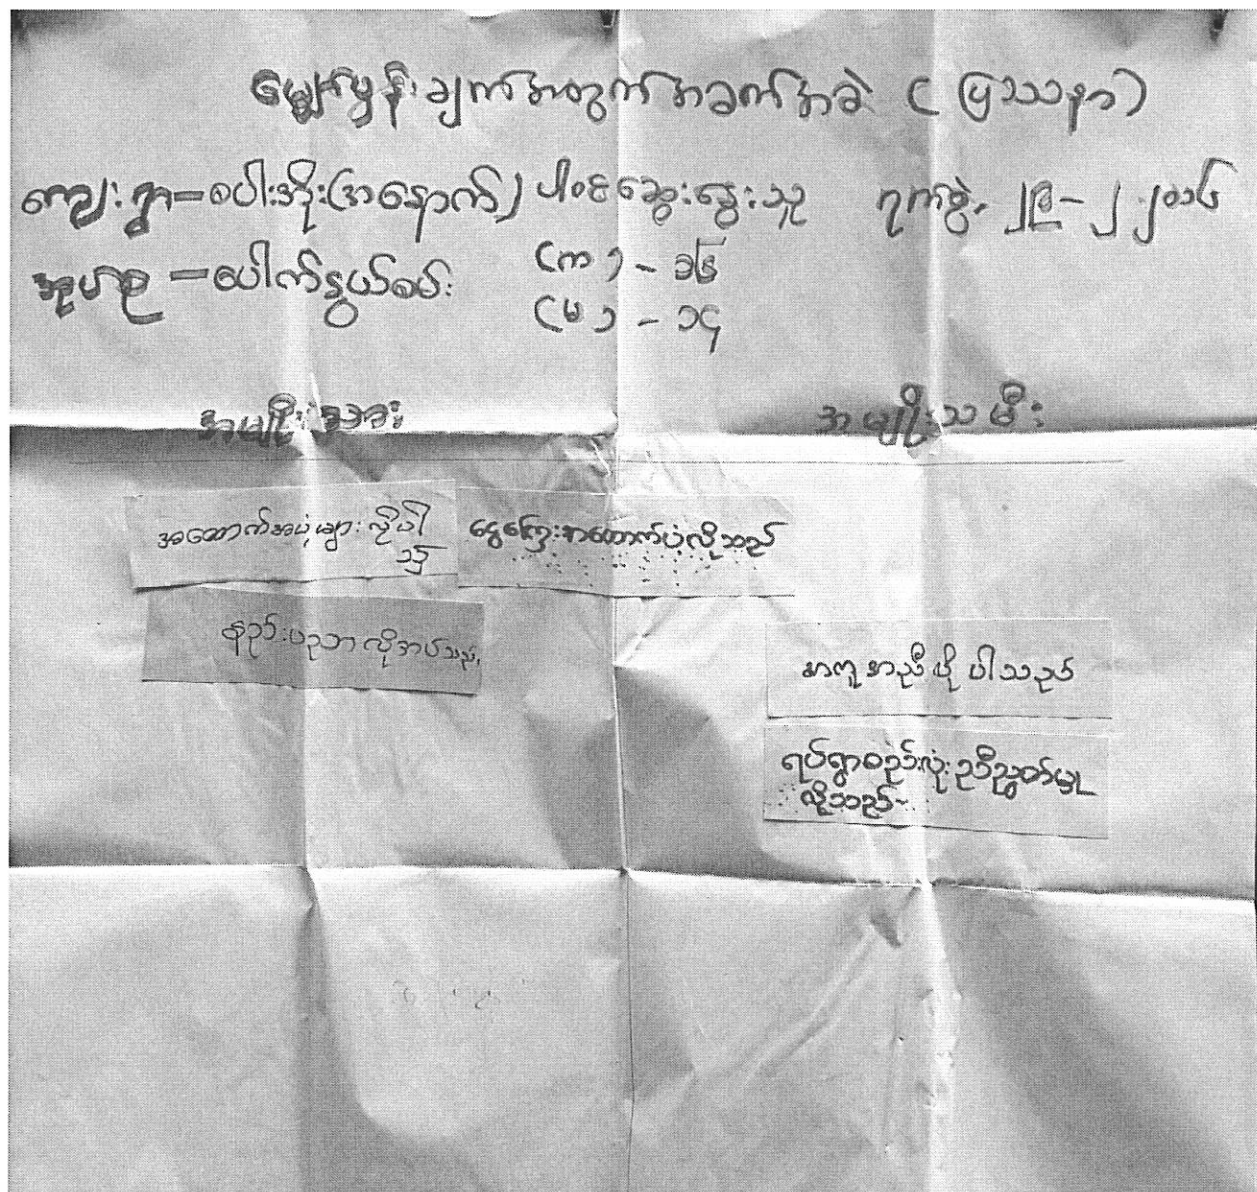 မျှော်မှန်းချက်အတွက်အခက်အခဲ (ပြဿနာ)
ကျေးရွာ-စပါးအိုး(အနောက်) ပါဝင်ဆွေးနွေးသူ ရက်စွဲ၊
အုပ်စု - ပေါက်နွယ်စမ်း (က) - ၁၆
(မ) - ၁၄
အမျိုးသား အမျိုးသမီး
အထောက်အပံ့များ လိုပါ ငွေကြေးအထောက်ပံ့လိုသည်
သည်
နည်းပညာ လိုအပ်သည်၊
အကူအညီ လိုပါသည်
ရပ်ရွာစည်းလုံးညီညွတ်မှု
လိုသည်-